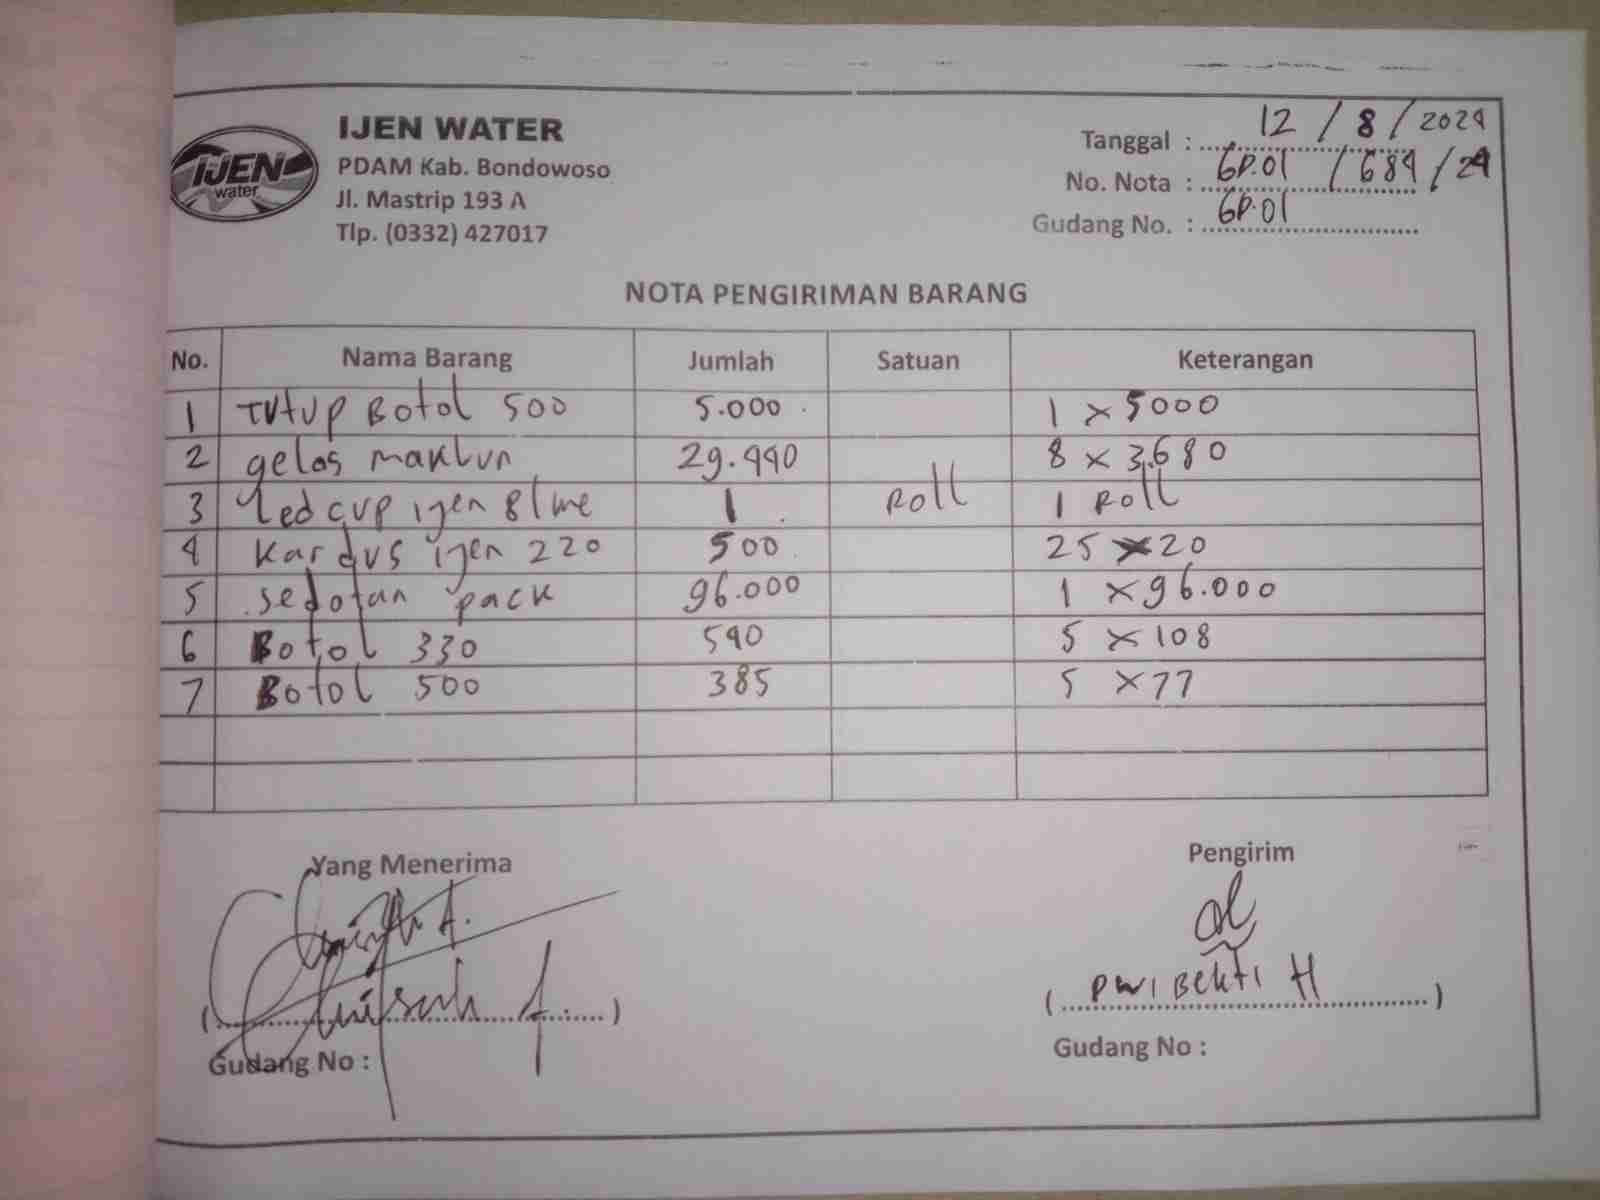 IJEN WATER
PDAM Kab. Bondowoso
Jl. Mastrip 193 A
Tlp. (0332) 427017
IJEN
water
Tanggal : 12 / 8 / 2024
No. Nota : GD.01 / 684 / 24
Gudang No. : GD.01
NOTA PENGIRIMAN BARANG
No. Nama Barang Jumlah Satuan Keterangan
1 Tutup Botol 500 5.000 1 x 5000
2 gelas maklun 29.440 8 x 3.680
3 Led cup ijen 1 Roll 1 Roll
4 Kardus ijen 220 500 25 x 20
5 sedotan pack 96.000 1 x 96.000
6 Botol 330 540 5 x 108
7 Botol 500 385 5 x 77
Yang Menerima
Pengirim
( A. )
( Dwi Bekti H )
Gudang No :
Gudang No :